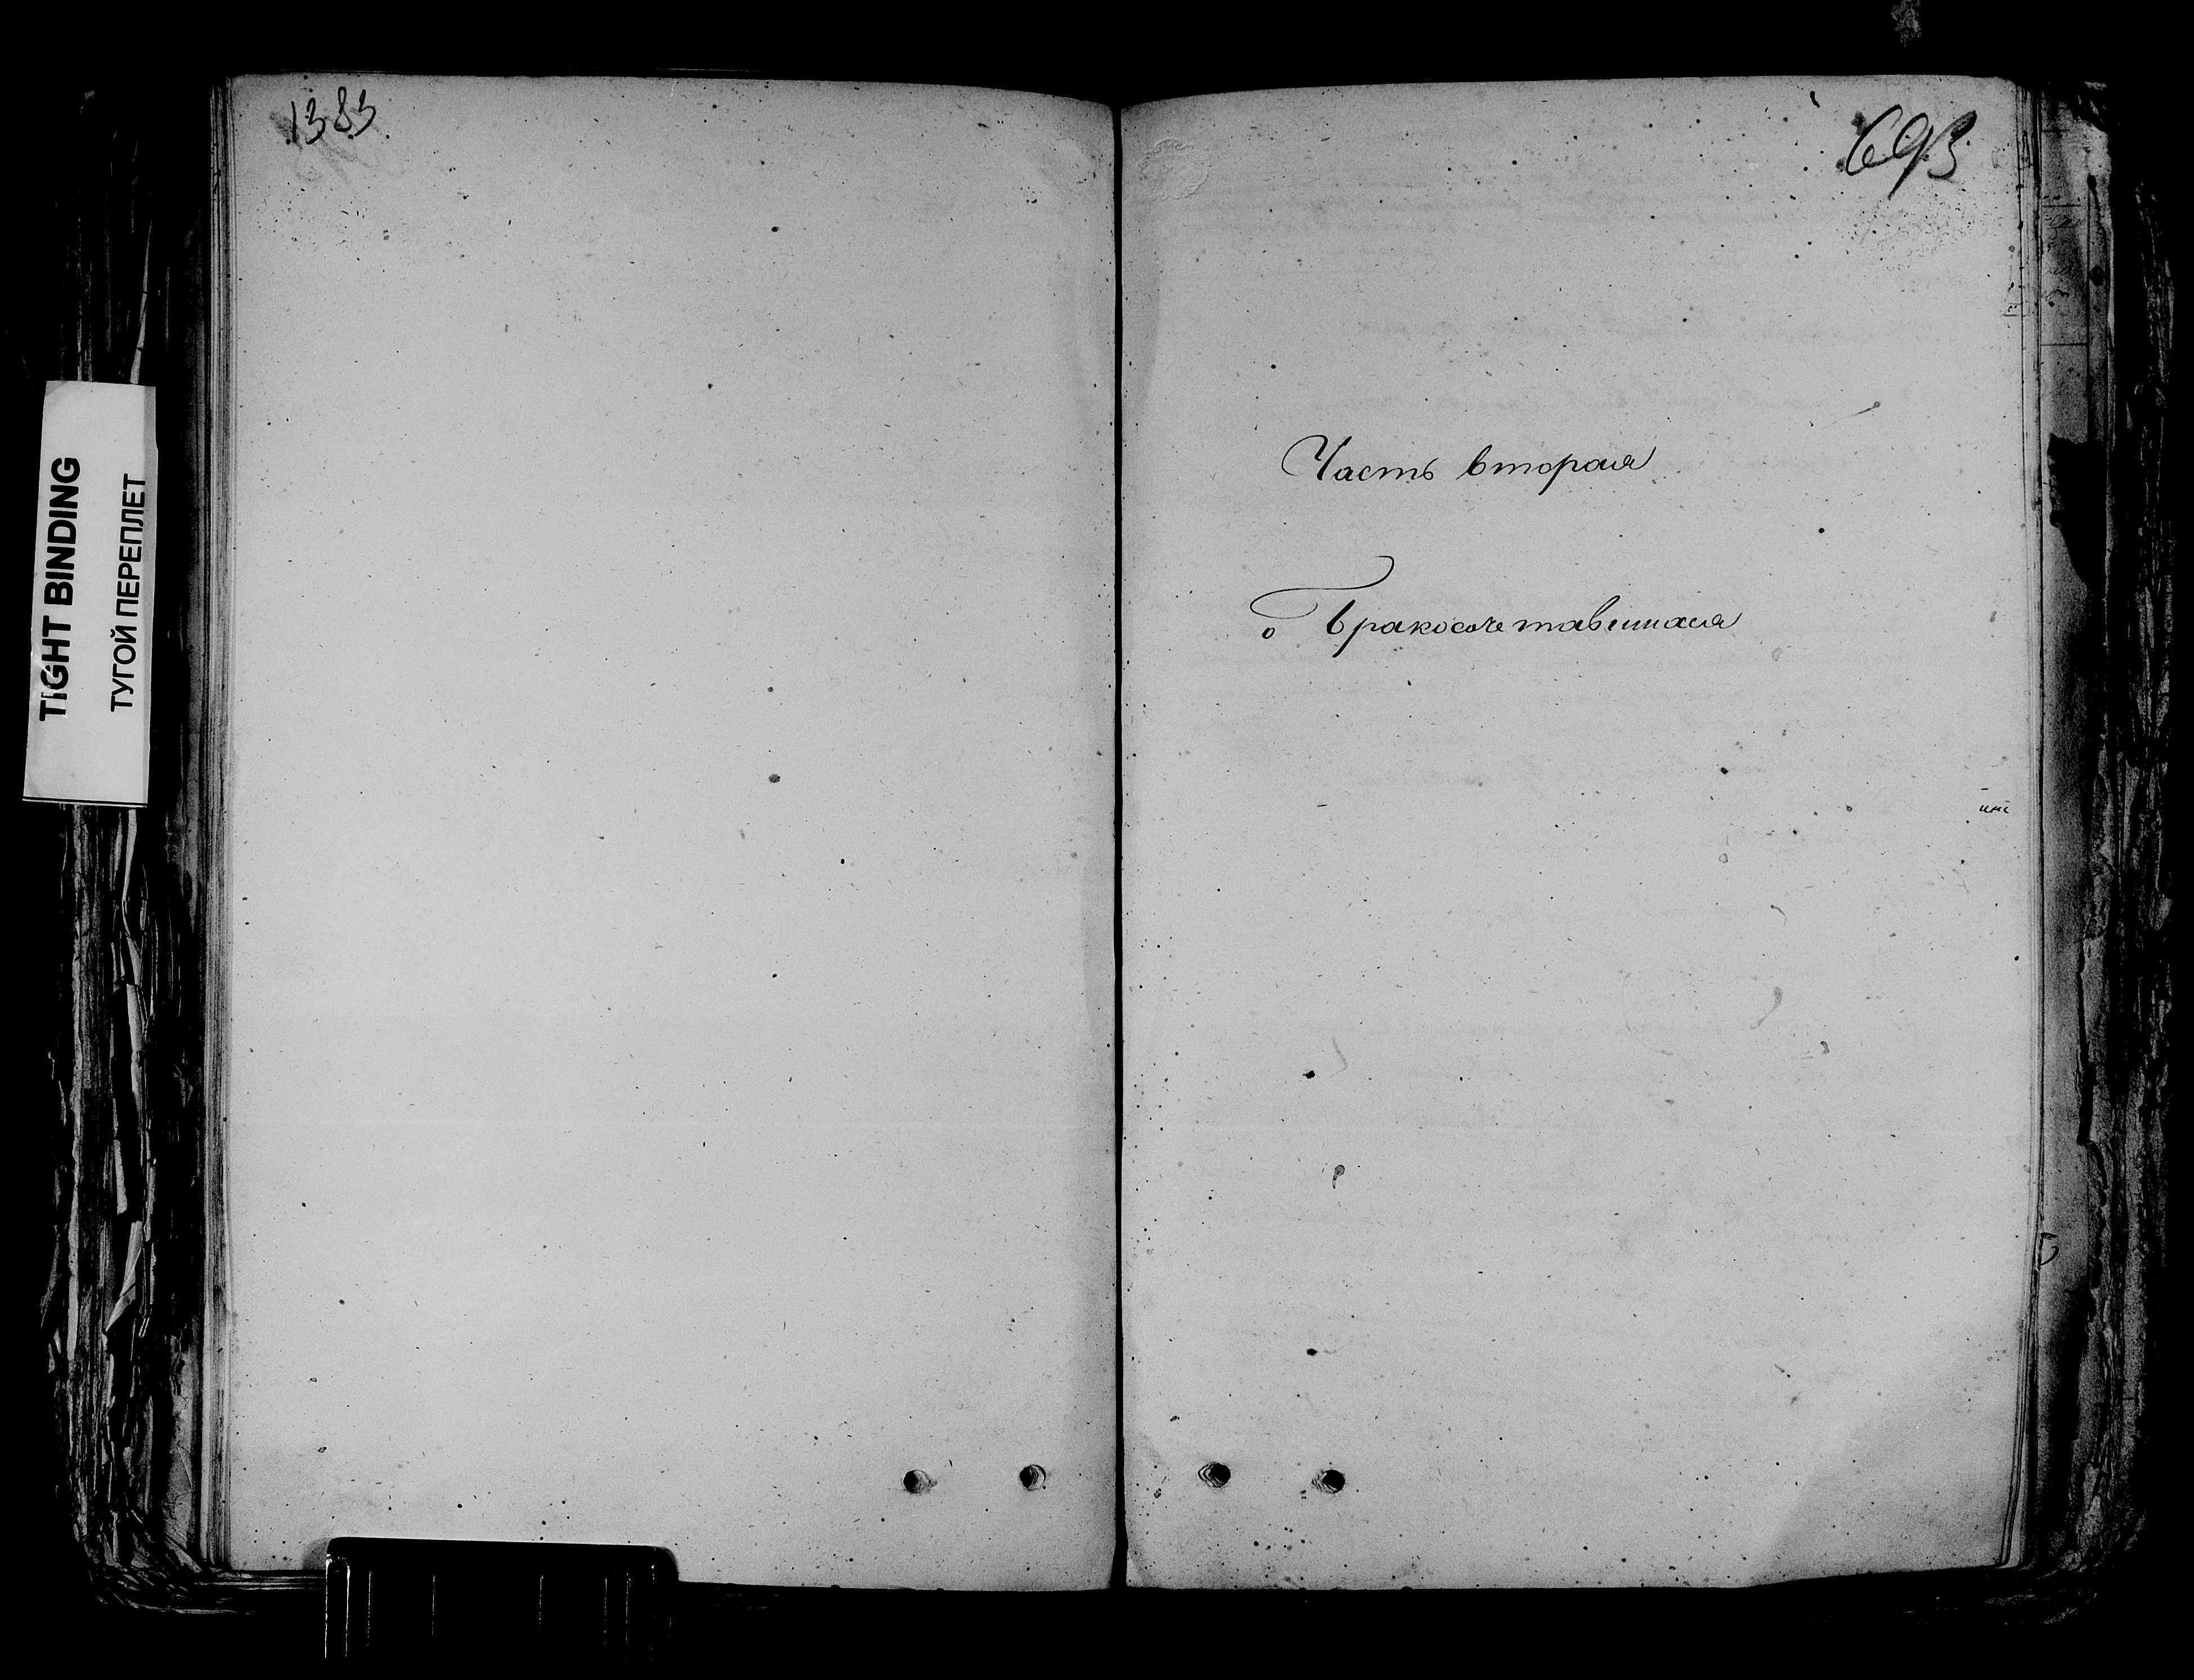 1383
693
TIGHT BINDING
ТУГОЙ ПЕРЕПЛЕТ
Часть вторая
о Бракосочетавшихся